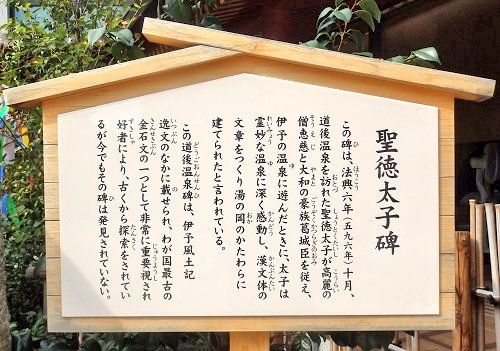 聖徳太子碑
この碑は、法興六年(五九六年)十月、
道後温泉を訪れた聖徳太子が高麗の
僧恵慈と大和の豪族葛城臣を従え、
伊予の温泉に遊んだときに、太子は
霊妙な温泉に深く感動し、漢文体の
文章をつくり湯の岡のかたわらに
建てられたと言われている。
この道後温泉碑は、伊予風土記
逸文のなかに載せられ、わが国最古の
金石文の一つとして非常に重要視され
好者により、古くから探索をされてい
るが今でもその碑は発見されていない。